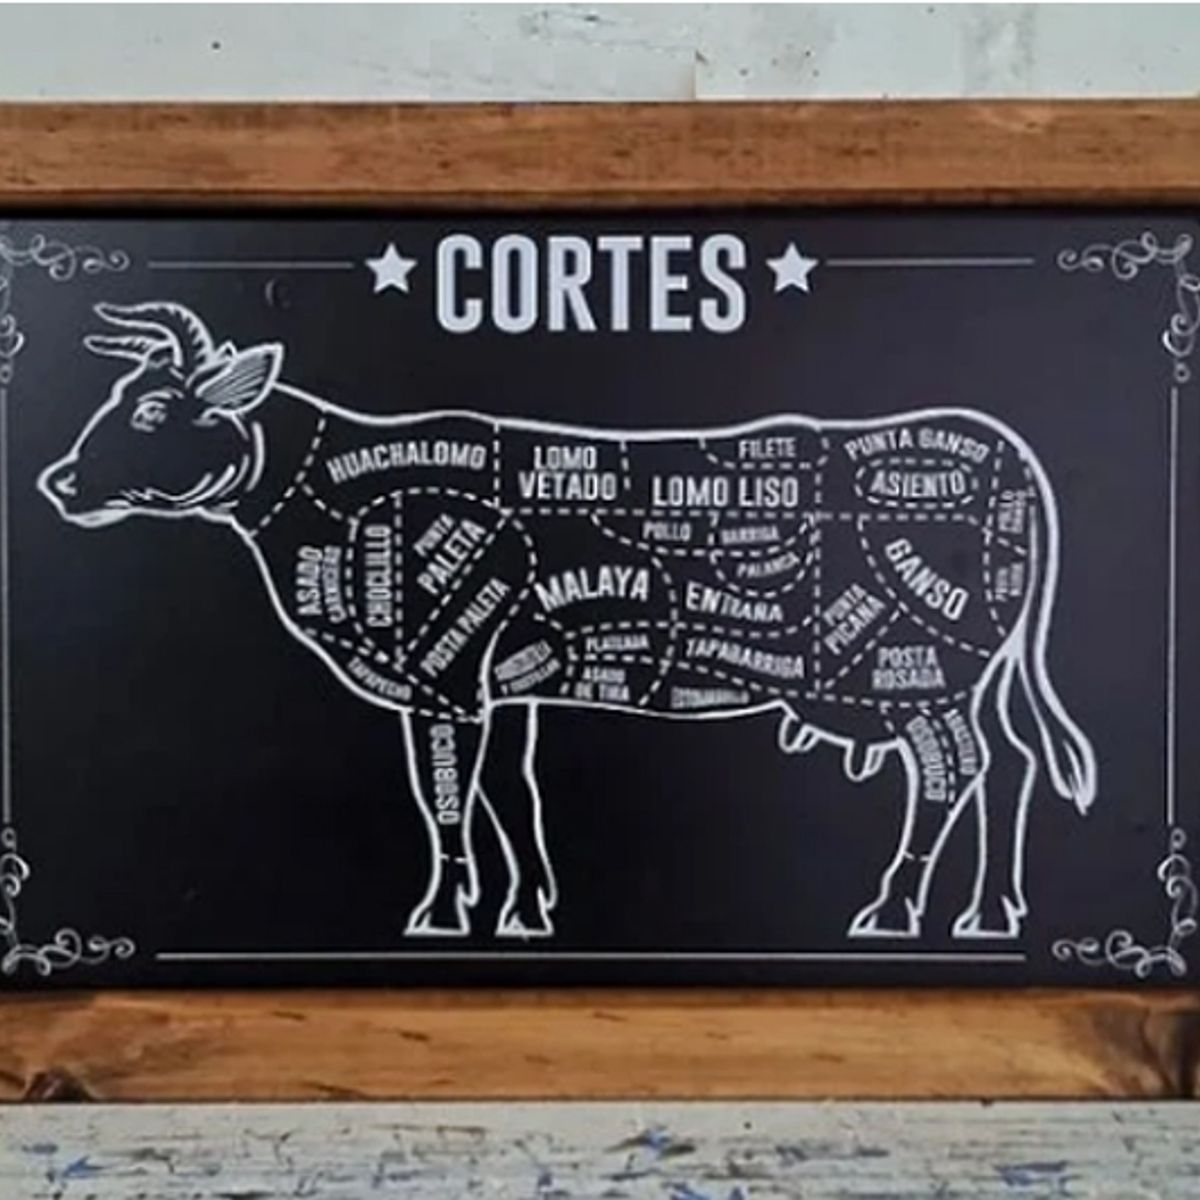 CORTES
HUACHALOMO
LOMO
VETADO
FILETE
LOMO LISO
PUNTA GANSO
ASIENTO
POLLO
GANSO
ASADO
CARNICERO
CHOCLILLO
PUNTA
PALETA
POSTA PALETA
MALAYA
POLLO
BARRIGA
PALANCA
ENTRAÑA
PUNTA
PICANA
GANSO
POSTA
NEGRA
TAPAPECHO
PLATEADA
ASADO
DE TIRA
TAPABARRIGA
POSTA
ROSADA
OSOBUCO
OSOBUCO